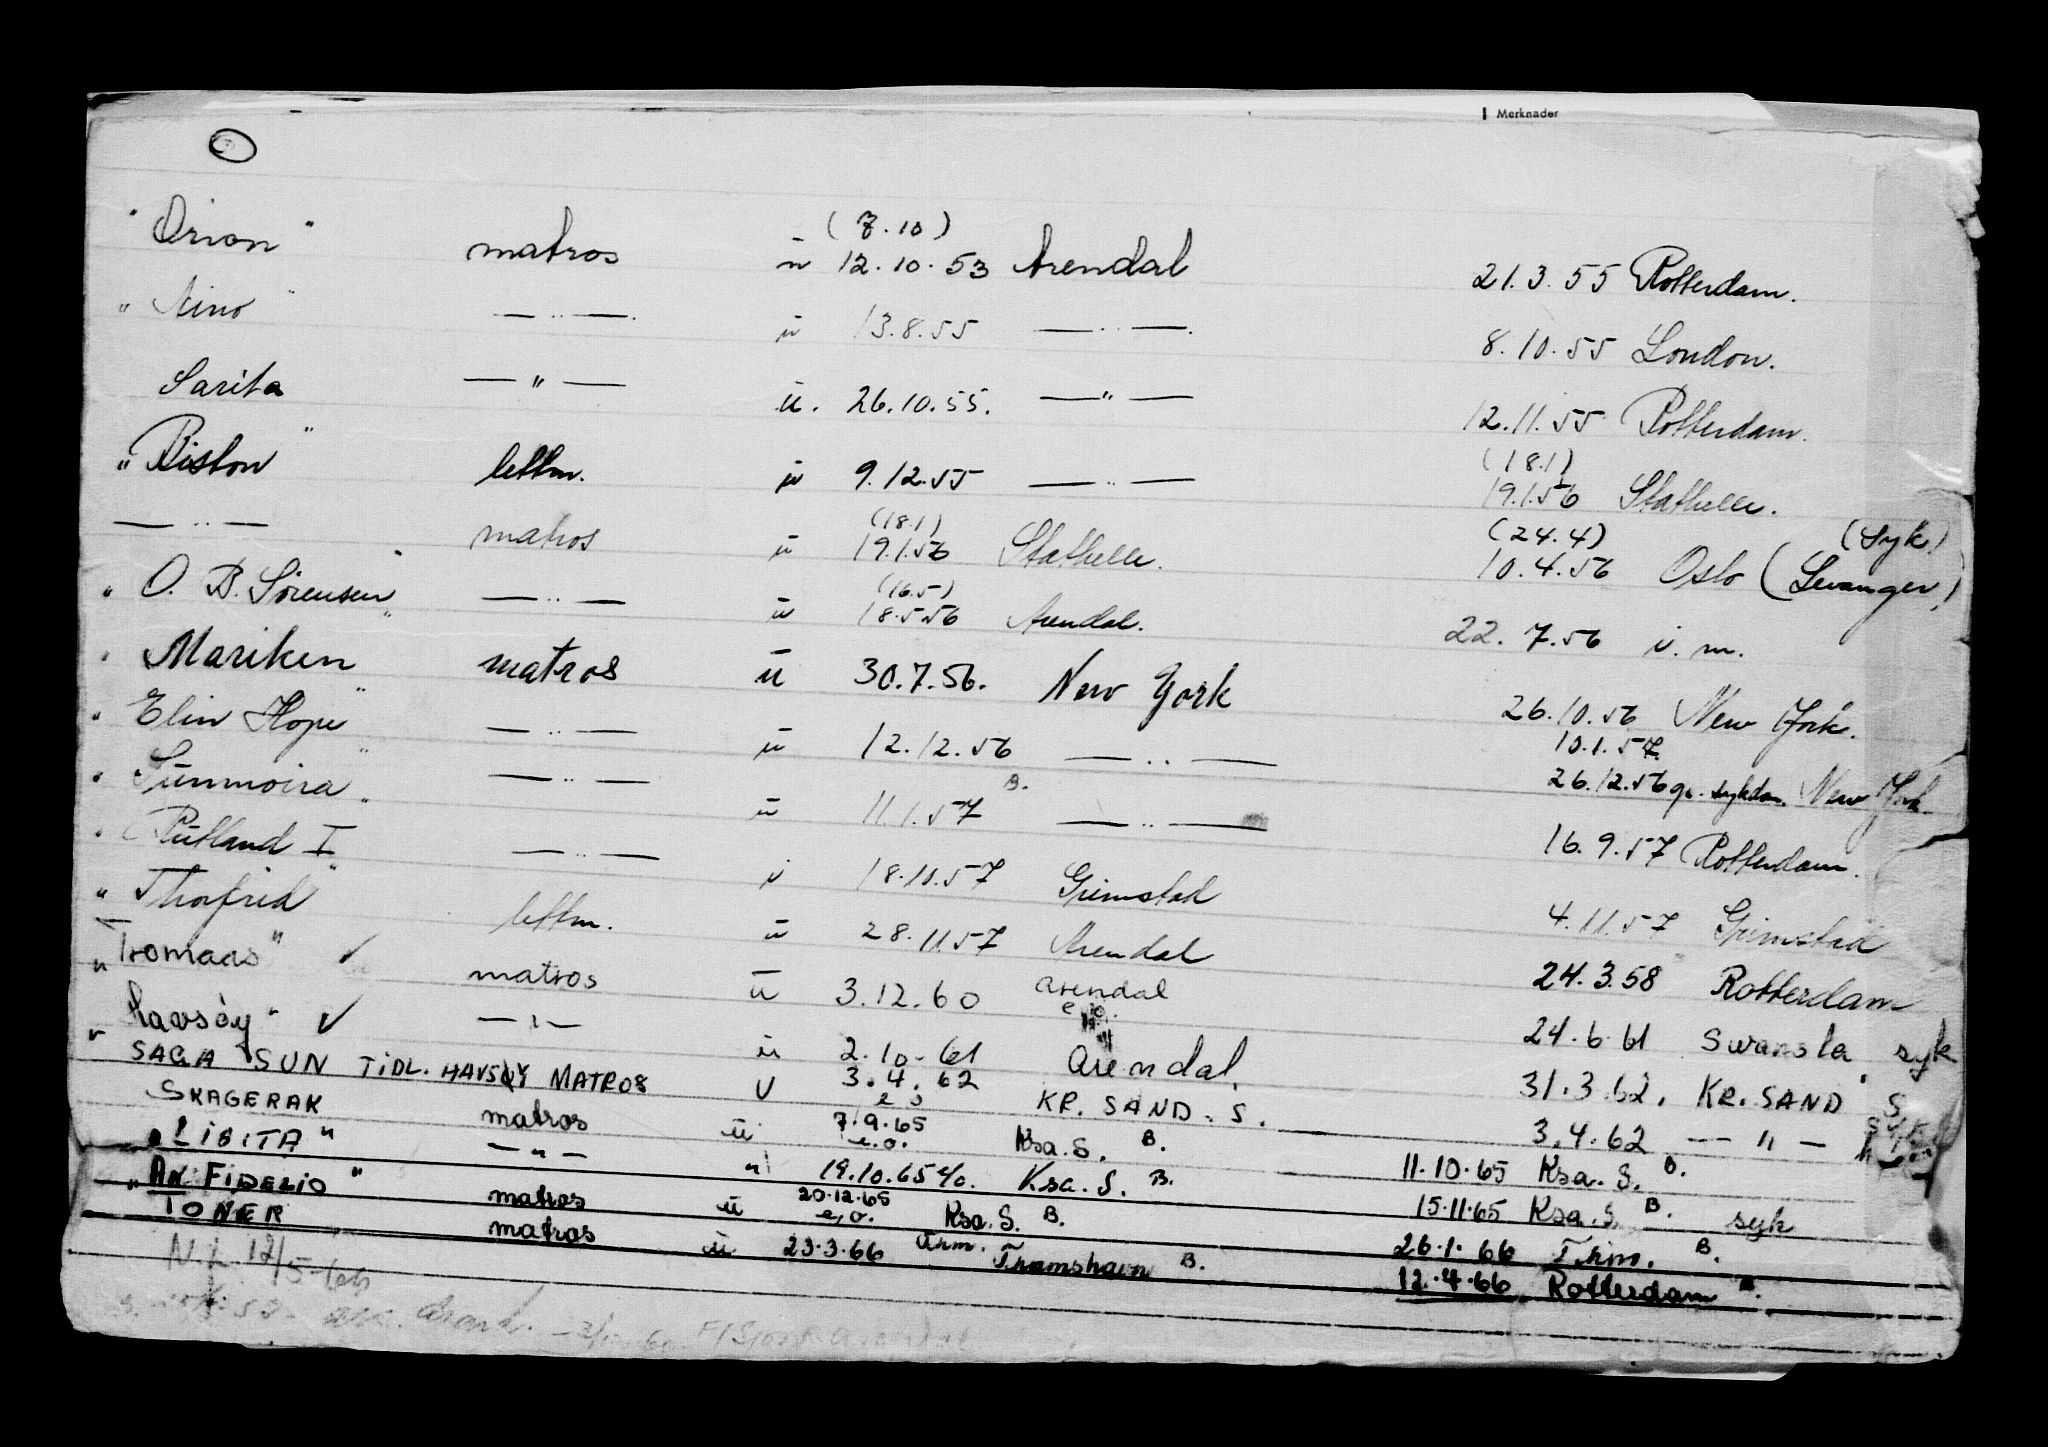 Merknader
"Orion" matros ü (7.10) 12.10.53 Arendal 21.3.55 Rotterdam.
"Aino" — " — ü 13.8.55 — " — 8.10.55 London.
Sarita — " — ü. 26.10.55. — " — 12.11.55 Rotterdam.
"Riston" lettm. ü 9.12.55 — " — (18.1) 19.1.56 Stathelle.
— " — matros ü (18.1) 19.1.56 Stathelle. (24.4) 10.4.56 Oslo (Levanger) (syk)
"O. B. Sörensen" — " — ü (16.5) 18.5.56 Arendal. 22.7.56 i. m.
"Mariken" matros ü 30.7.56. New York 26.10.56 New York.
"Elin Hope" — " — ü 12.12.56 — " — 10.1.57 26.12.56 gr. sykdom. New York.
"Sunmoira" — " — ü 11.1.57 B. — " — 16.9.57 Rotterdam.
"Rutland I" — " — ü 18.10.57 Grimstad 4.11.57 Grimstad
"Thorfrid" lettm. ü 28.11.57 Arendal 24.3.58 Rotterdam
"Tromaas" matros ü 3.12.60 arendal e.o. 24.6.61 Swansea syk
"Havsöy" — " — ü 2.10-61 arendal. 31.3.62. KR. SAND S
SAGA SUN TIDL. HAVSØY MATROS ü 3.4.62 e o KR. SAND. S. 3.4.62 — " —
SKAGERAK matros ü 7.9.65 e.o. Ksa. S. B. 11.10.65 Ksa. S. B.
"LIBITA" — " — " 19.10.65 Ksa. S. B. 15.11.65 Ksa. S. B. syk
"AK FIDELIO" matros ü 20.12.65 e.o. Ksa. S. B. 26.1.66 B.
TONER matros ü 23.3.66 Thamshavn B. 12.4.66 Rotterdam B.
12/5-66